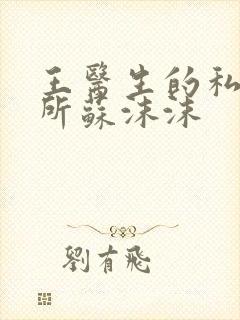 王醫生的私
所蘇沫沫
劉有飛